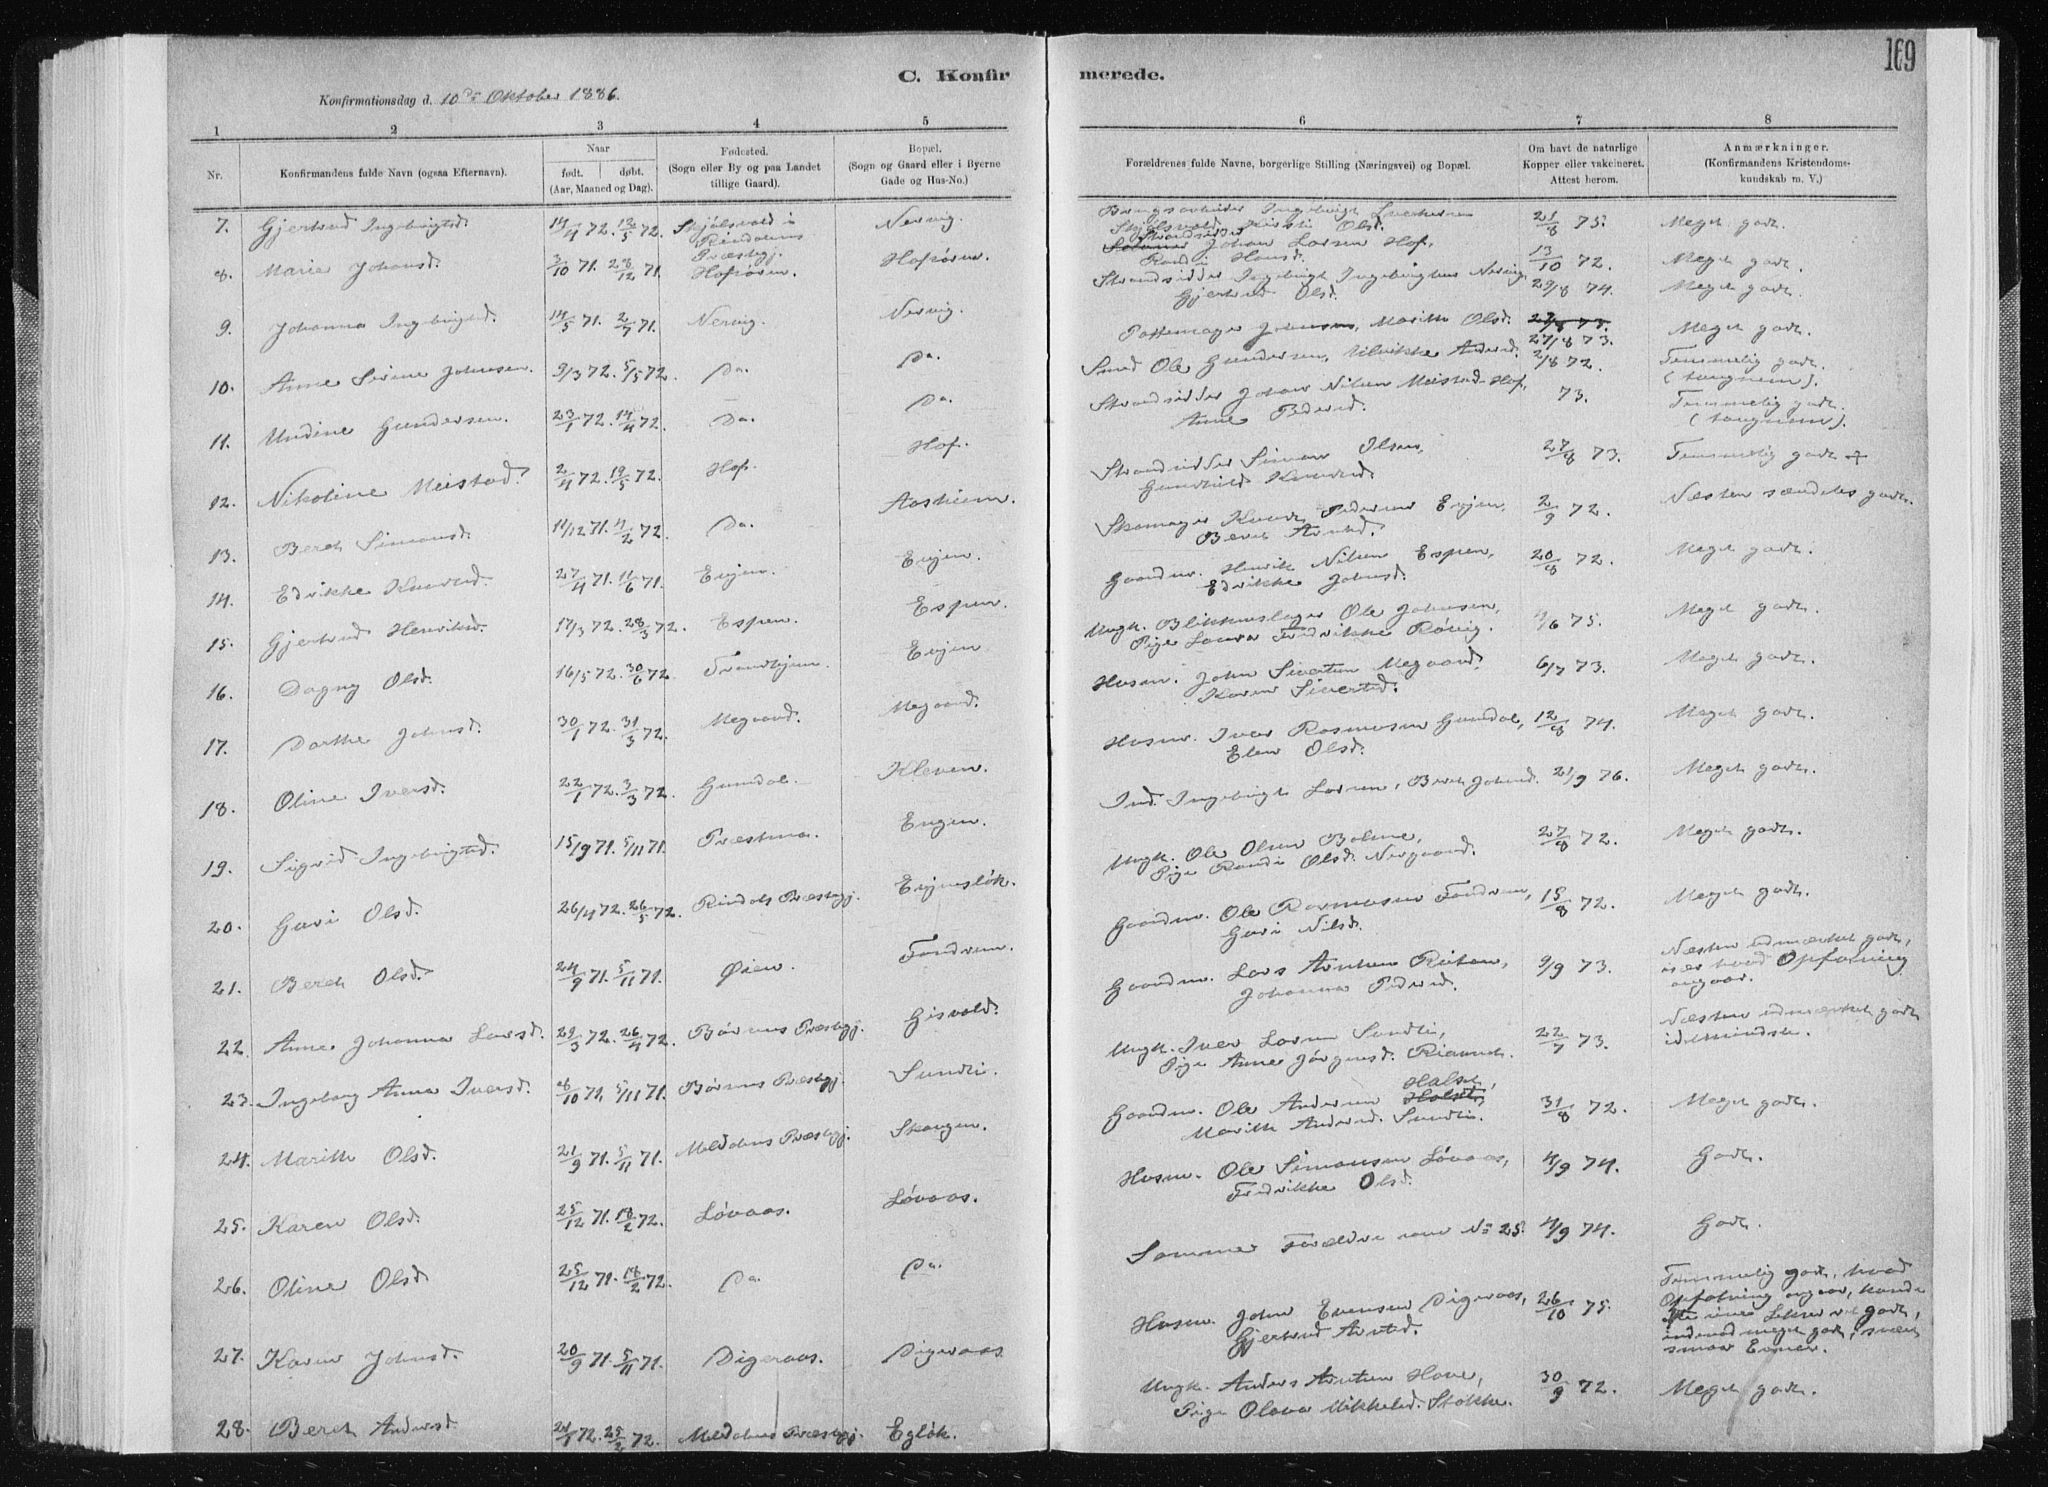 169
C. Konfirmerede.
Konfirmationsdag d. 10de Oktober 1886.
1 2 3 4 5 6 7 8
Nr.
Konfirmandens fulde Navn (ogsaa Efternavn).
Naar
født. døbt.
(Aar, Maaned og Dag).
Fødested.
(Sogn eller By og paa Landet
tillige Gaard).
Bopæl.
(Sogn og Gaard eller i Byerne
Gade og Hus-No.)
Forældrenes fulde Navne, borgerlige Stilling (Næringsvei) og Bopæl.
Om havt de naturlige
Kopper eller vakcineret.
Attest herom.
Anmærkninger.
(Konfirmandens Kristendoms-
kundskab m. V.)
7. Gjertrud Ingebrigtsd. 14/4 72. 12/5 72. Skjølsvold i Rindalens Præstegj. Nervig. Ingebrigt Skjølsvold, Kirsti Olsd. 21/8 75. Meget godt.
8. Marie Johansd. 3/10 71. 28/12 71. Hofsøren. Hofsøren. Strandsidder Johan Larsen Hof, Randi Hansd. 13/10 72. Meget godt.
9. Johanna Ingebrigtsd. 14/5 71. 2/7 71. Nervig. Nervig. Strandsidder Ingebrigt Ingebrigtsen Nervig, Gjertrud Olsd. 29/8 74. Meget godt.
10. Anne Sirine Johnsen. 9/3 72. 5/5 72. Do. Do. Pottemager Johnsen, Marith Olsd. 27/8 73. 27/8 73. Meget godt.
11. Undine Gundersen. 23/1 72. 14/4 72. Do. Do. Smed Ole Gundersen, Ulrikke Andersd. 2/8 72. Temmelig godt. (tungnem).
12. Nikoline Meistad. 2/4 72. 19/5 72. Hof. Hof. Strandsidder Johan Nilsen Meistad Hof, Anne Pedersd. 73. Temmelig godt. (tungnem).
13. Bereth Simonsd. 11/12 71. 11/2 72. Do. Aashiem. Strandsidder Simon Olsen, Gundhild Knudsd. 27/8 73. Temmelig godt +
14. Edrikke Knudsd. 27/4 71. 11/6 71. Evjen. Evjen. Skomager Knud Pedersen Evjen, Beret Arntsd. 2/9 72. Næsten særdeles godt.
15. Gjertrud Henriksd. 17/3 72. 28/3 72. Espen. Espen. Gaardm. Henrik Nilsen Espen, Edrikke Johnsd. 20/8 72. Meget godt.
16. Dagny Olsd. 16/5 72. 30/6 72 Trondhjem. Evjen. Ungk. Blikkenslager Ole Johnsen, Pige Laura Fredrikke Røvig. 4/6 75. Meget godt.
17. Dorthe Johnsd. 30/1 72. 31/3 72. Megaard. Megaard. Husm. John Sivertsen Megaard, Karen Sivertsd. 6/7 73. Meget godt.
18. Oline Iversd. 22/1 72. 3/3 72. Gumdal. Kleven. Husm. Iver Rasmusen Gumdal, Elen Olsd. 12/8 74. Meget godt.
19. Sigrid Ingebrigtsd. 15/9 71. 5/11 71. Præstmo. Engen. Ind. Ingebrigt Larsen, Bereth Johnsd. 21/9 76. Meget godt.
20. Guri Olsd. 26/4 72. 26/5 72. Rindals Præstegj. Evjensløk. Ungk. Ole Olsen Bolme, Pige Randi Olsd. Nergaard. 27/8 72. Meget godt.
21. Bereth Olsd. 24/9 71. 5/11 71. Øien. Fandrem. Gaardm. Ole Rasmusen Fandrem, Guri Nilsd. 15/8 72. Meget godt.
22. Anne Johanna Larsd. 29/3 72. 26/4 72. Børsens Præstegj. Gisvold. Gaardm. Lars Arntsen, Johanna Pedersd. 9/9 73. Næsten udmærket godt, især hvad Opførsning angaar.
23. Ingeborg Anna Iversd. 8/10 71. 5/11 71. Børsens Præstegj. Sundli. Ungk. Iver Larsen Sundli, Pige Anne Jørgensd. 22/7 73. Næsten udmærket godt idetmindste.
24. Marith Olsd. 21/9 71. 5/11 71. Meldalens Præstegj. Skaugen. Gaardm. Ole Andersen Holst, Halset, Marith Andersd. Sundli. 31/8 72. Meget godt.
25. Karen Olsd. 25/12 71. 18/2 72. Løvaas. Løvaas. Husm. Ole Simonsen Løvaas, Fredrikke Olsd. 4/9 74. Godt.
26. Oline Olsd. 25/12 71. 18/2 72. Do. Do. Samme Forældre som No 25. 4/9 74. Godt.
27. Karen Johnsd. 20/9 71. 5/11 71. Digeraas. Digeraas. Husm. John Evensen Digeraas, Gjertrud Arntsd. 26/10 75. Temmelig godt, hvad Opfatning angaar, meget godt, smaa Evner.
28. Bereth Andersd. 24/1 72. 25/2 72. Meldalens Præstegj. Egløk. Ungk. Anders Arntsen Hove, Pige Olava Mikkelsd. Stokke. 30/9 72. Meget godt.